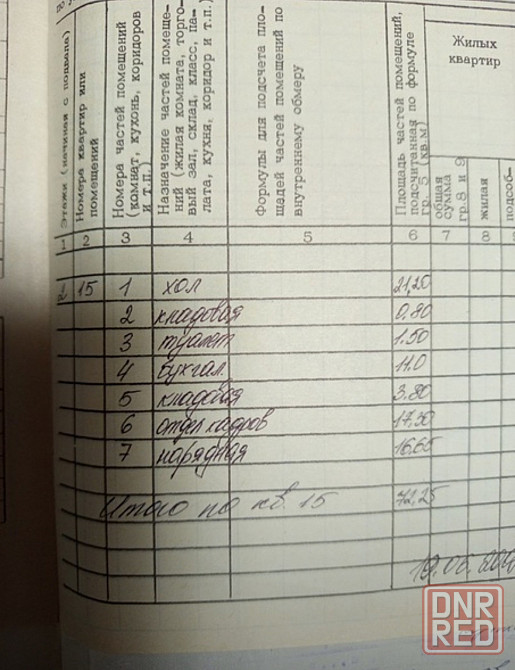 Этажи (начиная с подвала)
Номера квартир или помещений
Номера частей помещений (комнат, кухонь, коридоров и т.п.)
Назначение частей помещений (жилая комната, торговый зал, склад, класс, палата, кухня, коридор и т.п.)
Формулы для подсчета площадей частей помещений по внутреннему обмеру
Площадь частей помещений, подсчитанная по формуле гр. 5 (кв м)
Жилых квартир
общая сумма гр.8 и 9
жилая
подсоб-
1 2 3 4 5 6 7 8
15 1 хол 21,20
2 кладовая 0.80
3 туалет 1.50
4 бухгал. 11.0
5 кладовая 3.80
6 отдел кадров 17,30
7 нарядная 16,65
Итого по кв. 15 72,25
DNR
RED